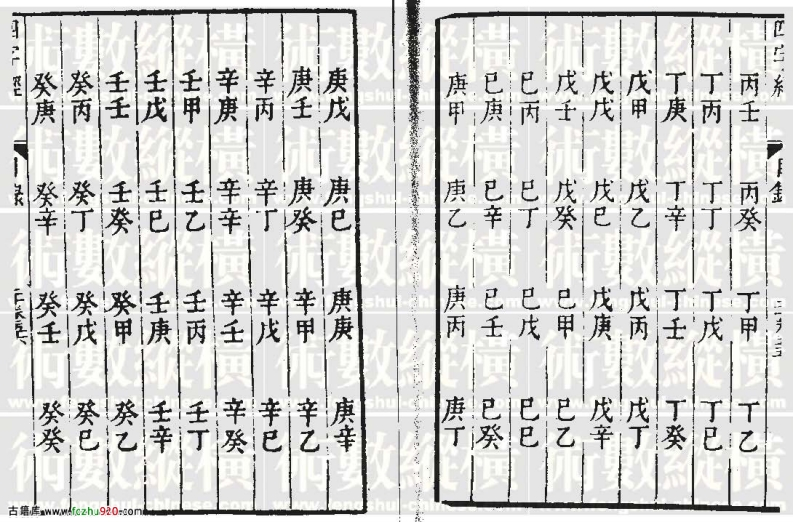 四字經 目錄
丙壬 丙癸 丁甲 丁乙
丁丙 丁丁 丁戊 丁巳
丁庚 丁辛 丁壬 丁癸
戊甲 戊乙 戊丙 戊丁
戊戊 戊巳 戊庚 戊辛
戊壬 戊癸 巳甲 巳乙
巳丙 巳丁 巳戊 巳巳
巳庚 巳辛 巳壬 巳癸
庚甲 庚乙 庚丙 庚丁
庚戊 庚巳 庚庚 庚辛
庚壬 庚癸 辛甲 辛乙
辛丙 辛丁 辛戊 辛巳
辛庚 辛辛 辛壬 辛癸
壬甲 壬乙 壬丙 壬丁
壬戊 壬巳 壬庚 壬辛
壬壬 壬癸 癸甲 癸乙
癸丙 癸丁 癸戊 癸巳
癸庚 癸辛 癸壬 癸癸
四字經 目錄
術數縱橫
www.fengshui-chinese.com
古籍库 www.fozhu920.com